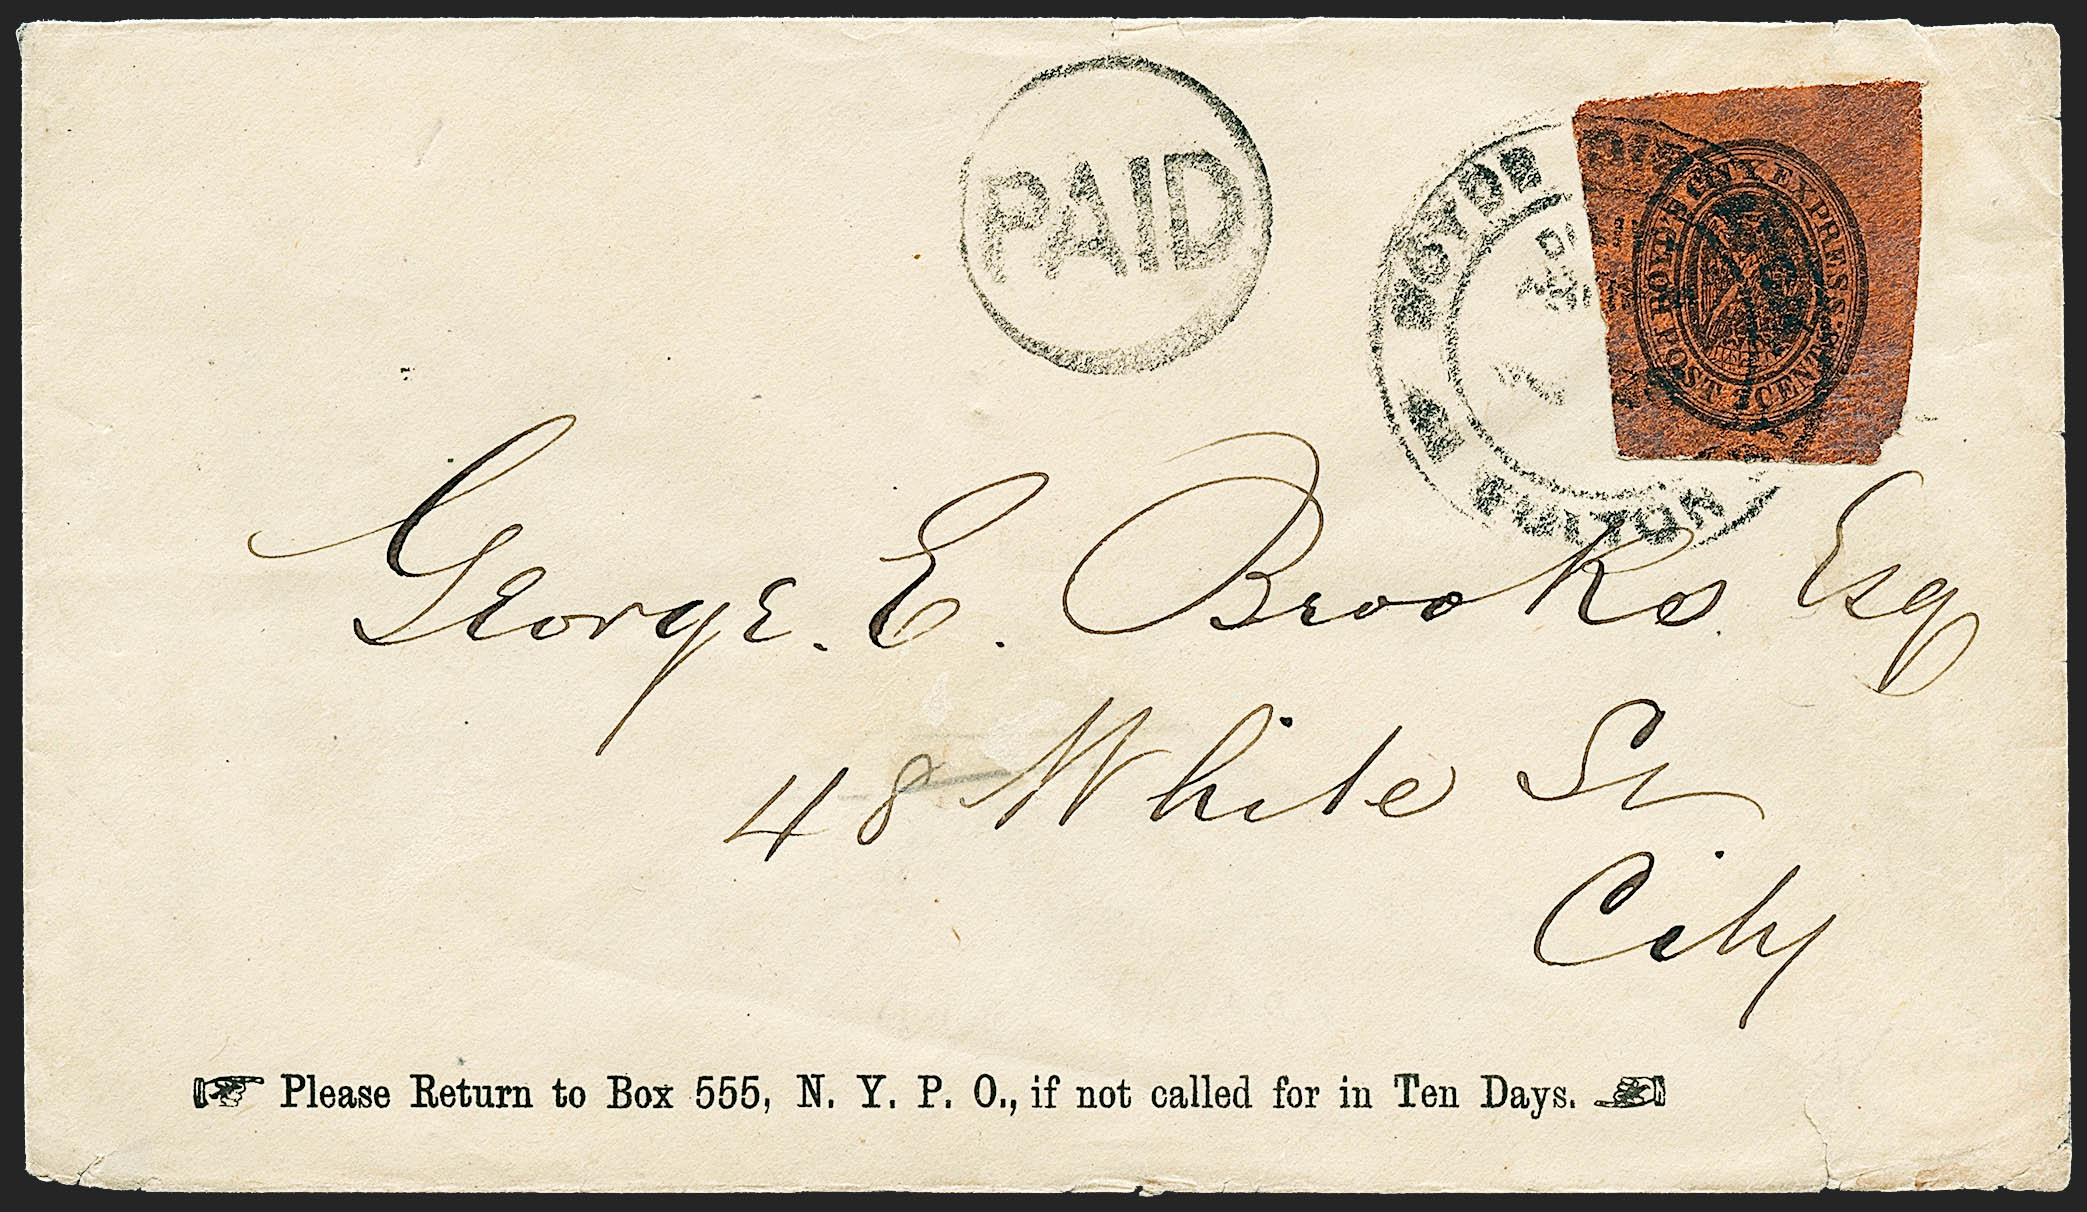 PAID
BOYD'S
FULTON
POST 7 CENTS
EXPRESS
George. E. Brooks Esq
48 White St
City
Please Return to Box 555, N. Y. P. O., if not called for in Ten Days.